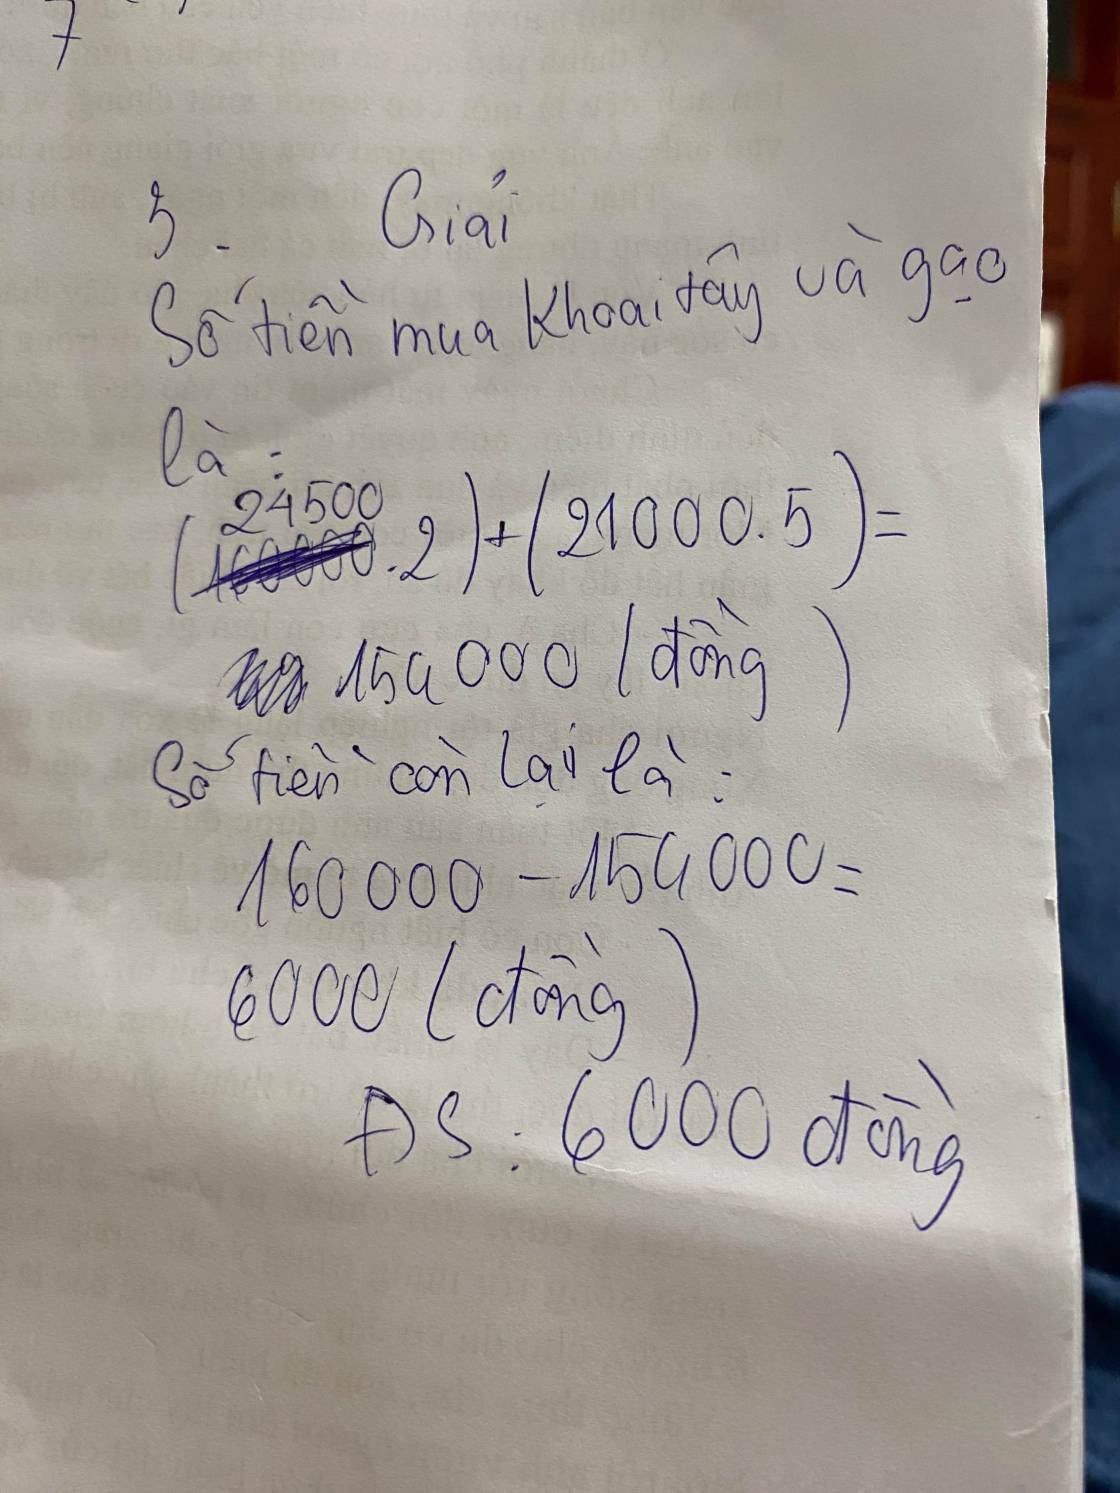 7
3. Giải
Số tiền mua Khoai tây và gạo
là :
24500
(160000.2)+(21000.5)=
154000 (đồng)
Số tiền còn lại là :
160000 - 154000=
6000 (đồng)
ĐS : 6000 đồng